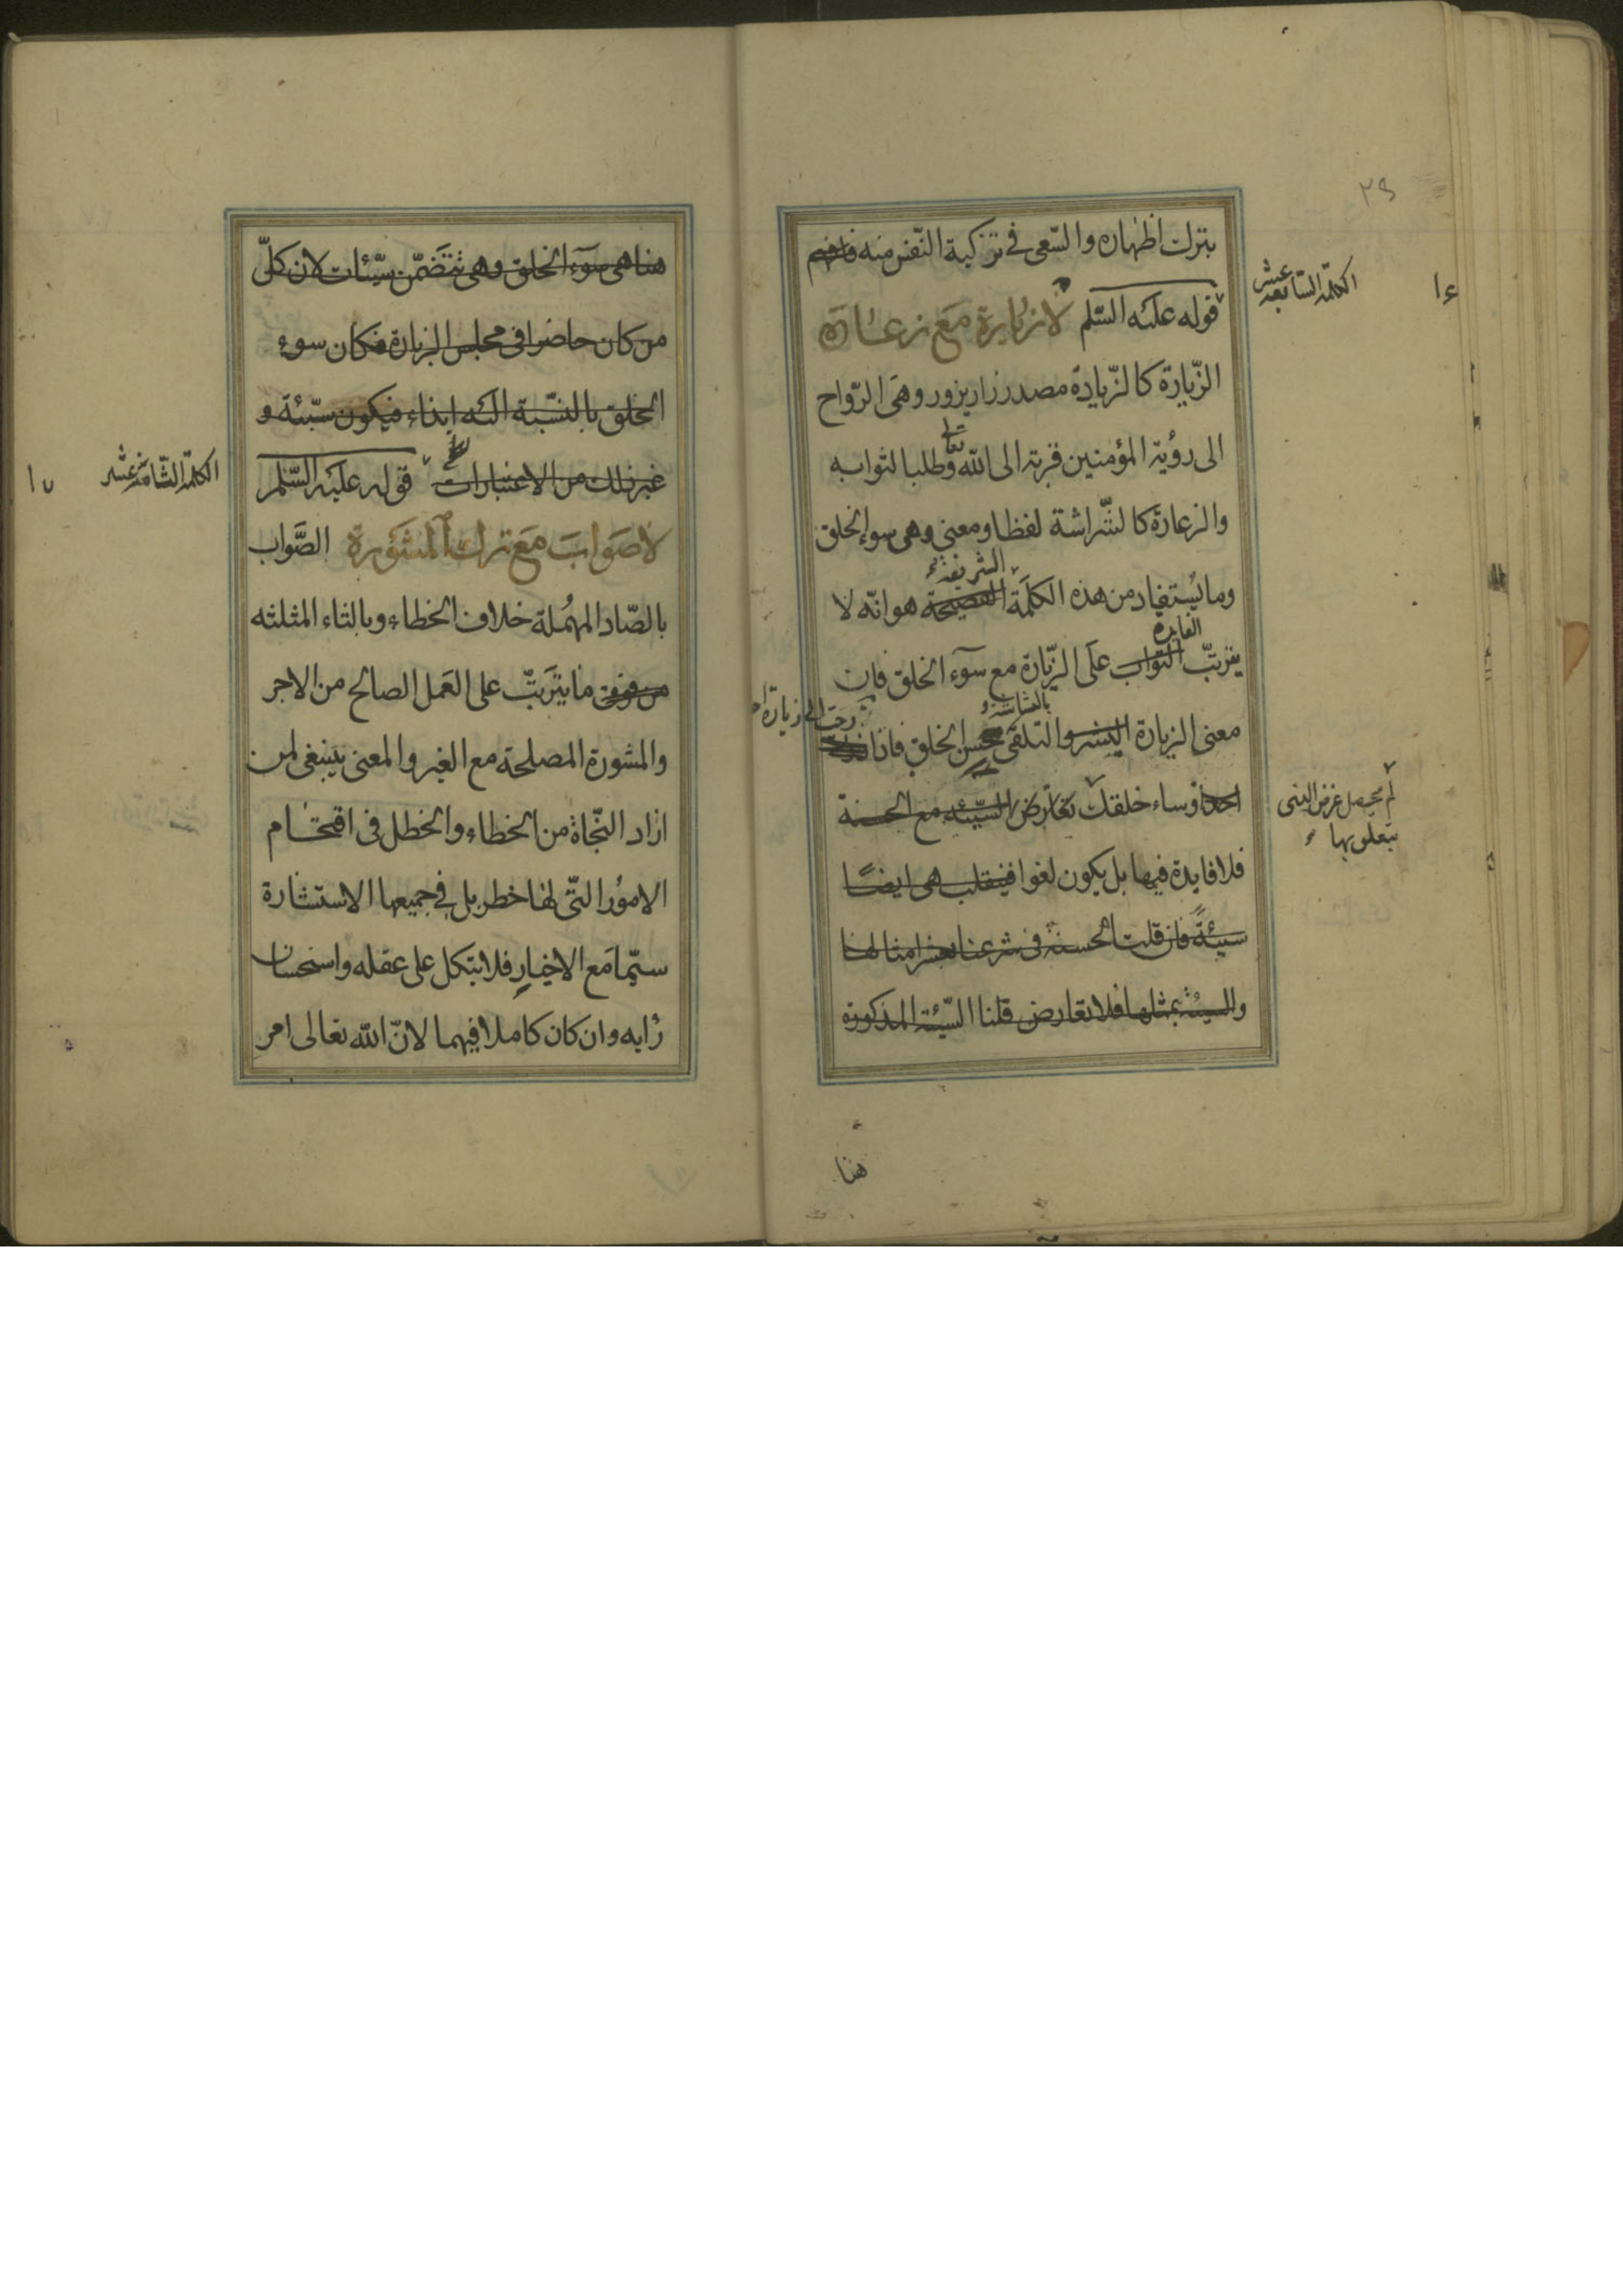 ٢٩
بترك اظهاره والسّعى فى تزكية النّفس منه فافهم
قوله عليه السّلم لا زيارة مع زعارة
الكلمة السّابعة عشر
الزّيارة كالزّيادة مصدر زار يزور وهى الرّواح
الى رؤية المؤمنين قربة الى الله تعالى وطلبا لثوابه
والزعارّة كالشّراشة لفظا ومعنى وهى سوء الخلق
وما يستفاد من هذه الكلمة الفصيحة الشريفة هو انّه لا
يترتّب الثواب الفايدة على الزّيارة مع سوء الخلق فان
معنى الزيارة البشر والتلقى بالبشاشة و حسن الخلق فاذا
رحت الى زيارة
احد وساء خلقك تعارض السّيّئة مع الحسنة
لم يحصل غرض
فلا فايدة فيها بل يكون لغوا فينقلب هى ايضًا
سيئةً فان قلت الحسنة فى شرعنا بعشر امثالها
والسيئة بمثلها فلا تعارض قلنا السّيّئة المذكورة
هنا
هنا هى سوء الخلق وهى تتضمّن سيّئات لان كلّ
من كان حاضرا فى مجلس الزيارة فكان سوء
الخلق بالنّسبة اليه ايذاء فيكون سيّئة و
غير ذلك من الاعتبارات قوله عليه السّلم
الكلمة الثّامنة عشر
لا صواب مع ترك المشورة الصّواب
بالصّاد المهملة خلاف الخطاء وبالثاء المثلثه
من فوق ما يترتّب على العمل الصالح من الاجر
والمشورة المصلحة مع الغير والمعنى ينبغى لمن
اراد النّجاة من الخطاء والخطل فى اقتحام
الامور التّى لها خطر بل فى جميعها الاستشارة
سيّما مع الاخيار فلا يتكل على عقله واستحسان
رايه وان كان كاملا فيهما لانّ الله تعالى امر